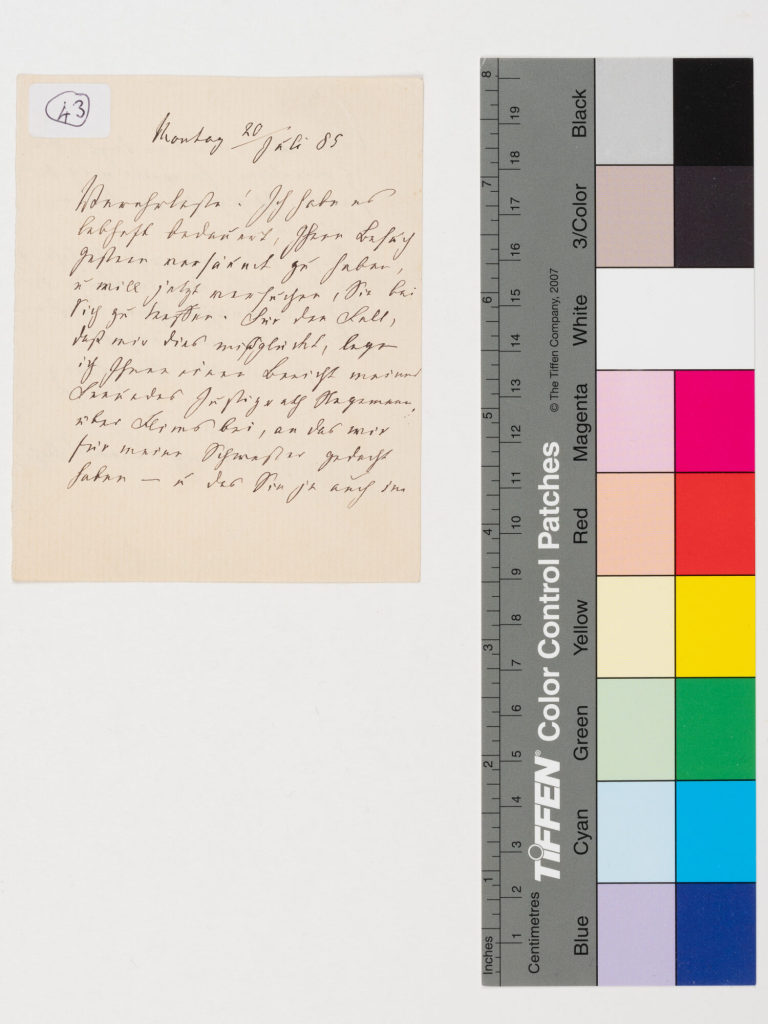 43
Montag 20/Juli 85
Verehrteste! Ich habe es
lebhaft bedauert, Ihren Besuch
gestern versäumt zu haben,
u will jetzt versuchen, Sie bei
sich zu treffen. Für den Fall,
daß mir dies mißglückt, lege
ich Ihnen einen Bericht meines
Freundes Justizrath Hagemann,
über Flims bei, an das wir
für meine Schwester gedacht
haben — u das Sie ja auch im
8 7 6 5 4 3 2 1 Inches
19 18 17 16 15 14 13 12 11 10 9 8 7 6 5 4 3 2 1 Centimetres
TIFFEN® Color Control Patches
© The Tiffen Company, 2007
Black
3/Color
White
Magenta
Red
Yellow
Green
Cyan
Blue